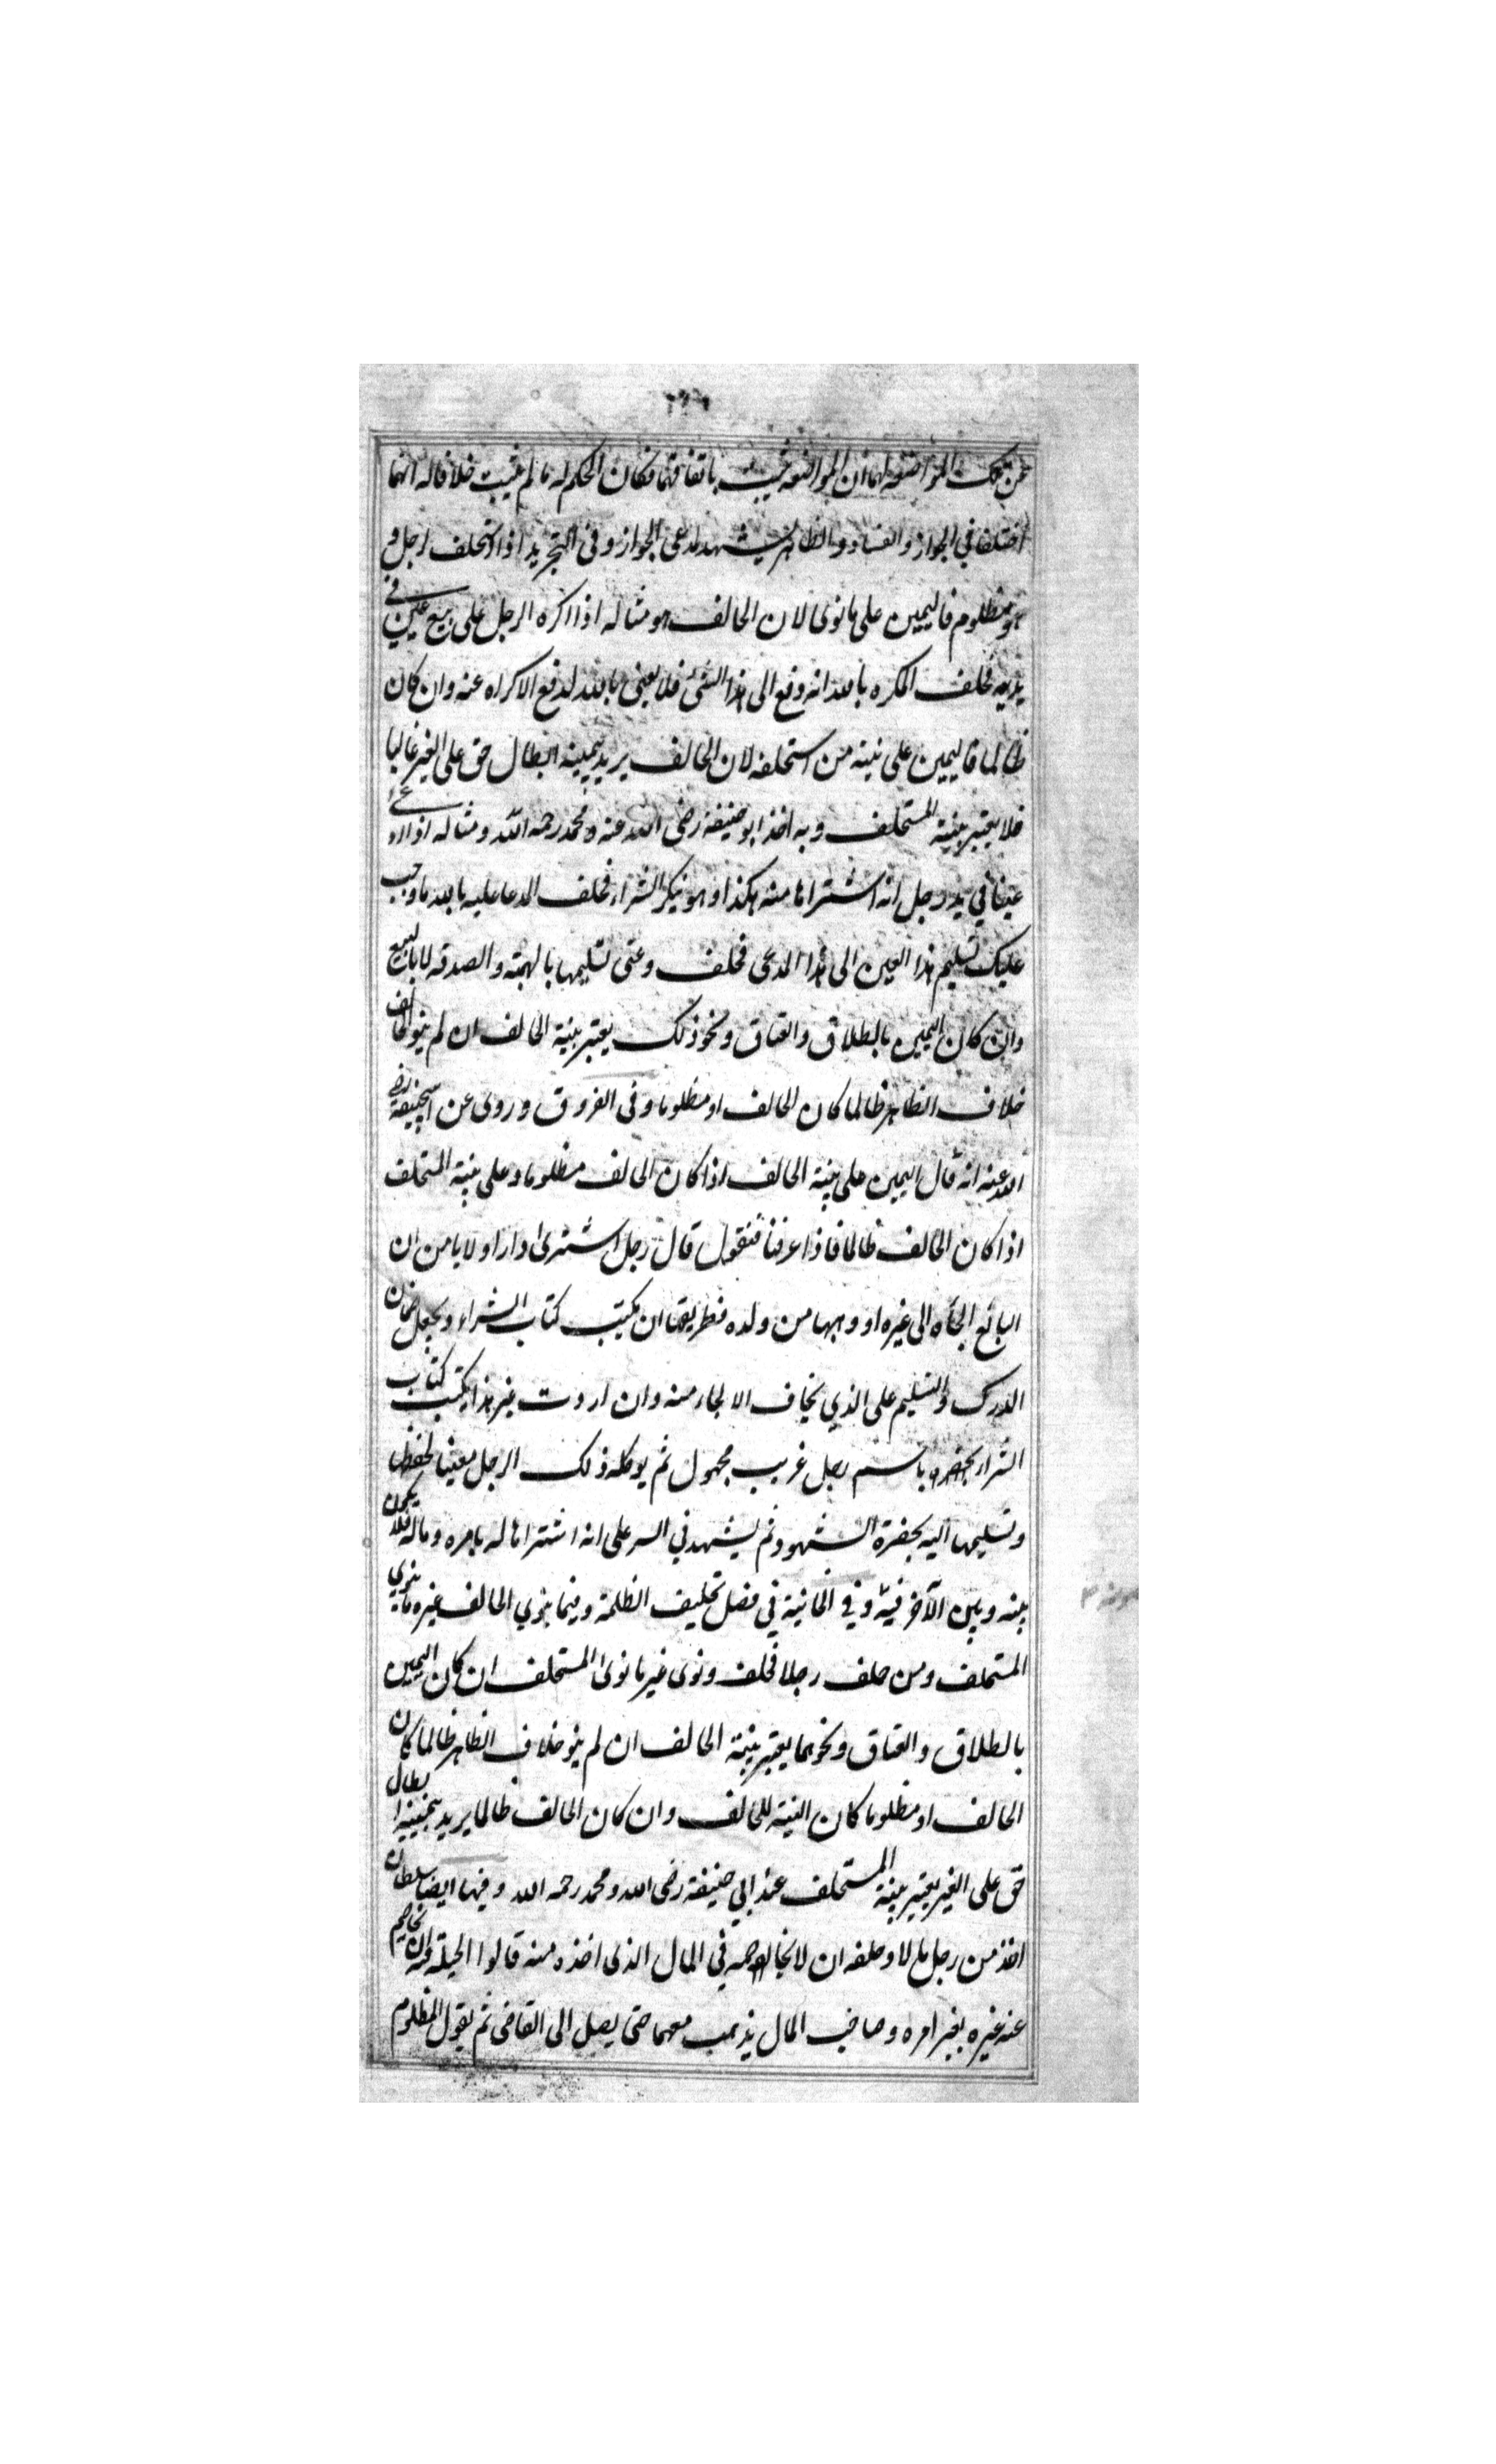 عن تلك المواضعة لهما ان المواضعة تثبت باتفاقهما فكان الحكم له ما لم يثبت خلافا له انهما
اختلفا في الجواز والفساد والظاهر يشهد لمدعى الجواز وفى التجريد اذا استحلف رجل و
هو مظلوم فاليمين على ما نوى لان الحالف هو مثاله اذا اكره الرجل على بيع عين في
يديه فحلف المكره بالله انه دفع الى هذا الشئ فلا يعنى بالله لدفع الاكراه عنه وان كان
ظالما فاليمين على نيته من استحلفه لان الحالف يريد بيمينه ابطال حق على الغير غالبا
فلا يعتبر بنية المستحلف وبه اخذ ابو حنيفة رضى الله عنه ومحمد رحمه الله ومثاله اذا ادعى
عينا في يد رجل انه اشتراها منه بكذا وهو ينكر الشراء فحلف المدعا عليه بالله ما وجب
عليك تسليم هذا العين الى هذا المدعى فحلف وعنى تسليمها بالهبة والصدقه لا بالبيع
وان كان اليمين بالطلاق والعتاق ونحو ذلك يعتبر بنية الحالف ان لم ينو الحالف
خلاف الظاهر ظالما كان الحالف او مظلوما وفى الفروق وروى عن ابيحنيفة رضى
الله عنه انه قال اليمين على بنية الحالف اذا كان الحالف مظلوما وعلى بنية المستحلف
اذا كان الحالف ظالما فاذا عرفنا فنقول قال رجل اشترى دارا ولا يامن ان
البائع الجأه الى غيره او وهبها من ولده فطريقها ان يكتب كتاب الشراء ويجعل ضمان
الدرك والتسليم على الذي يخاف الالجاء منه وان اردت غير هذا يكتب كتاب
الشراء بحضره باسم رجل غريب مجهول ثم يوكله ذلك الرجل معينا لحفظ
وتسليمها اليه بحضرة الشهود ثم يشهد في السر على انه اشتراها له بامره وماله فلا يمكن
بينه وبين الآخر فيه وفي الخانية في فصل تحليف الظلمة وفيما ينوي الحالف غيره ما ينوي
المستحلف ومن حلف رجلا فحلف ونوى غير ما نوى المستحلف ان كان اليمين
بالطلاق والعتاق ونحوهما يعتبر بنية الحالف ان لم ينو خلاف الظاهر ظالما كان
الحالف او مظلوما كان النية للحالف وان كان الحالف ظالما يريد بيمينه ابطال
حق على الغير يعتبر بنية المستحلف عند ابي حنيفة رضى الله ومحمد رحمه الله وفيها ايضا سلطان
اخذ من رجل مالا وحلفه ان لا يخاصمه في المال الذى اخذه منه قالوا الحيلة فيه ان يخاصم
عنه غيره بغير امره وصاحب المال يذهب معهما حتى يصل الى القاضى ثم يقول المظلوم